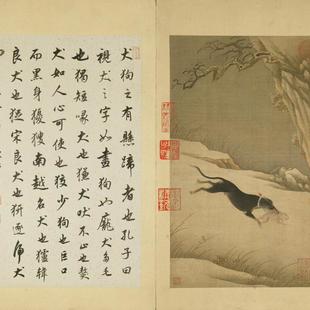 犬狗之有懸蹄者也孔子曰
視犬之字如畫狗也尨犬多毛
也猲短喙犬也獫犬吠不止也獒
犬如人心可使也狡少狗也巨口
而黑身獀獿南越名犬也獹韓
良犬也 宋良犬也 逐虎犬